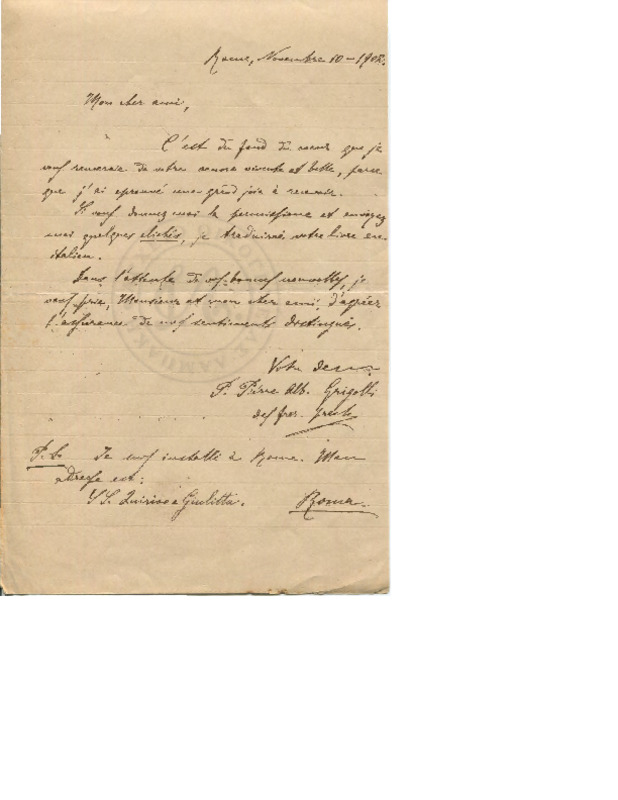 Rome, Novembre 10 - 190
Mon cher ami,
C'est du fond du coeur que je
vous remercie de votre vivante et belle, parce
que j'ai eprouvé une grand joie à recevoir.
Si vous donnez moi la permissione et envoyez
moi quelques clichés, je traduirai votre livre en
italien.
Dans l'attente de vos bonnes nouvelles, je
vous prie, Monsieur et mon cher ami, d'agréer
l'assurance de mes sentiments distingués.
Votre
P. Pierre Alb. Grigolli
des fres.
P.S. Je installé à Rome. Mon
adresse est:
SS. Quirico e Giulitta. Roma.